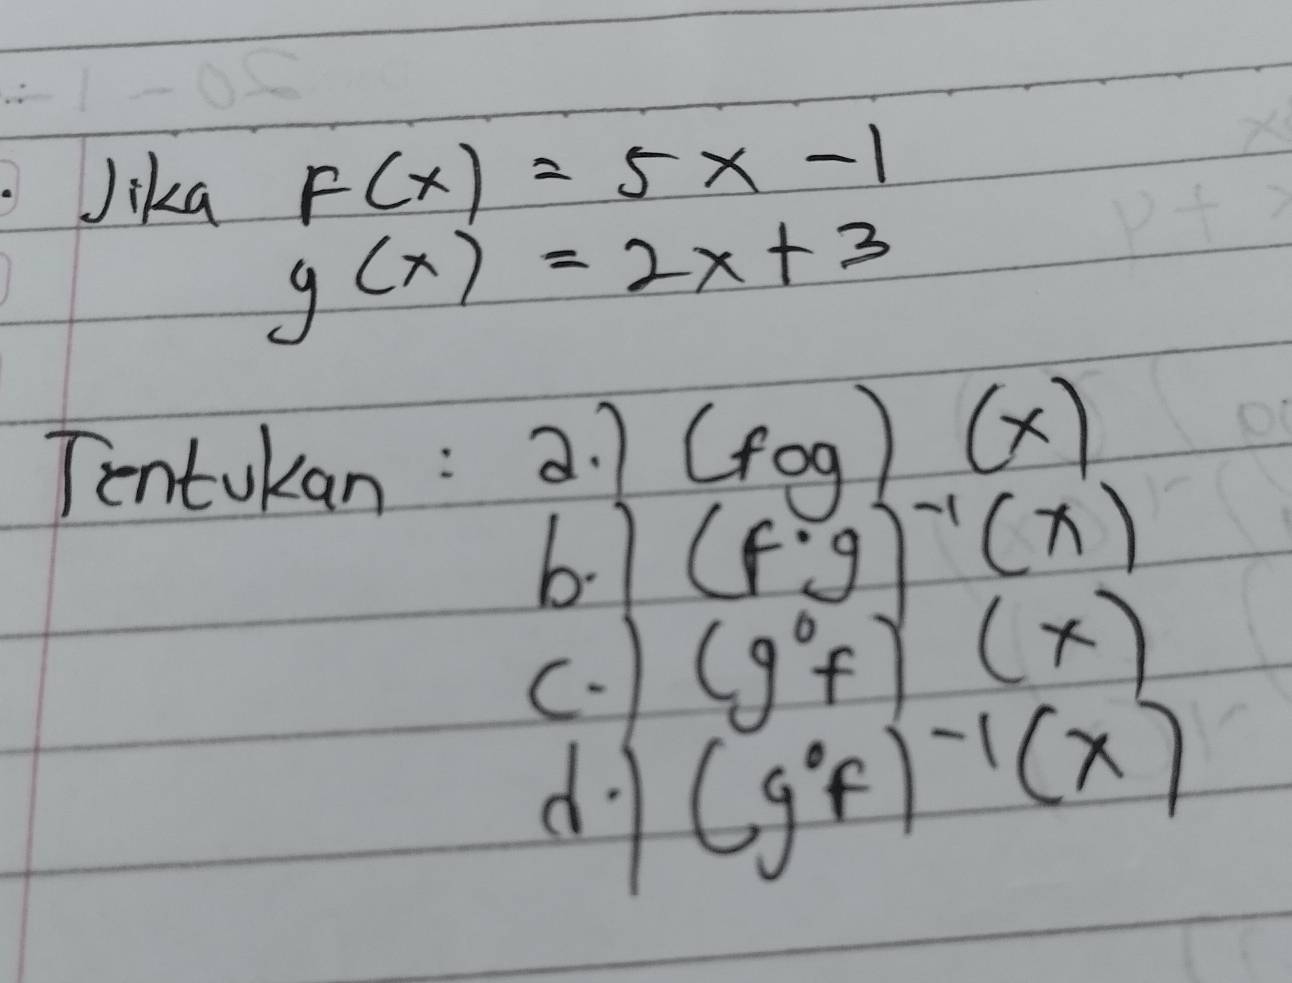 Jika F(x) = 5x - 1
g(x) = 2x + 3
Tentukan : a.) (fog) (x)
b.) (f∘g)⁻¹(x)
c.) (g∘f) (x)
d.) (g∘f)⁻¹(x)